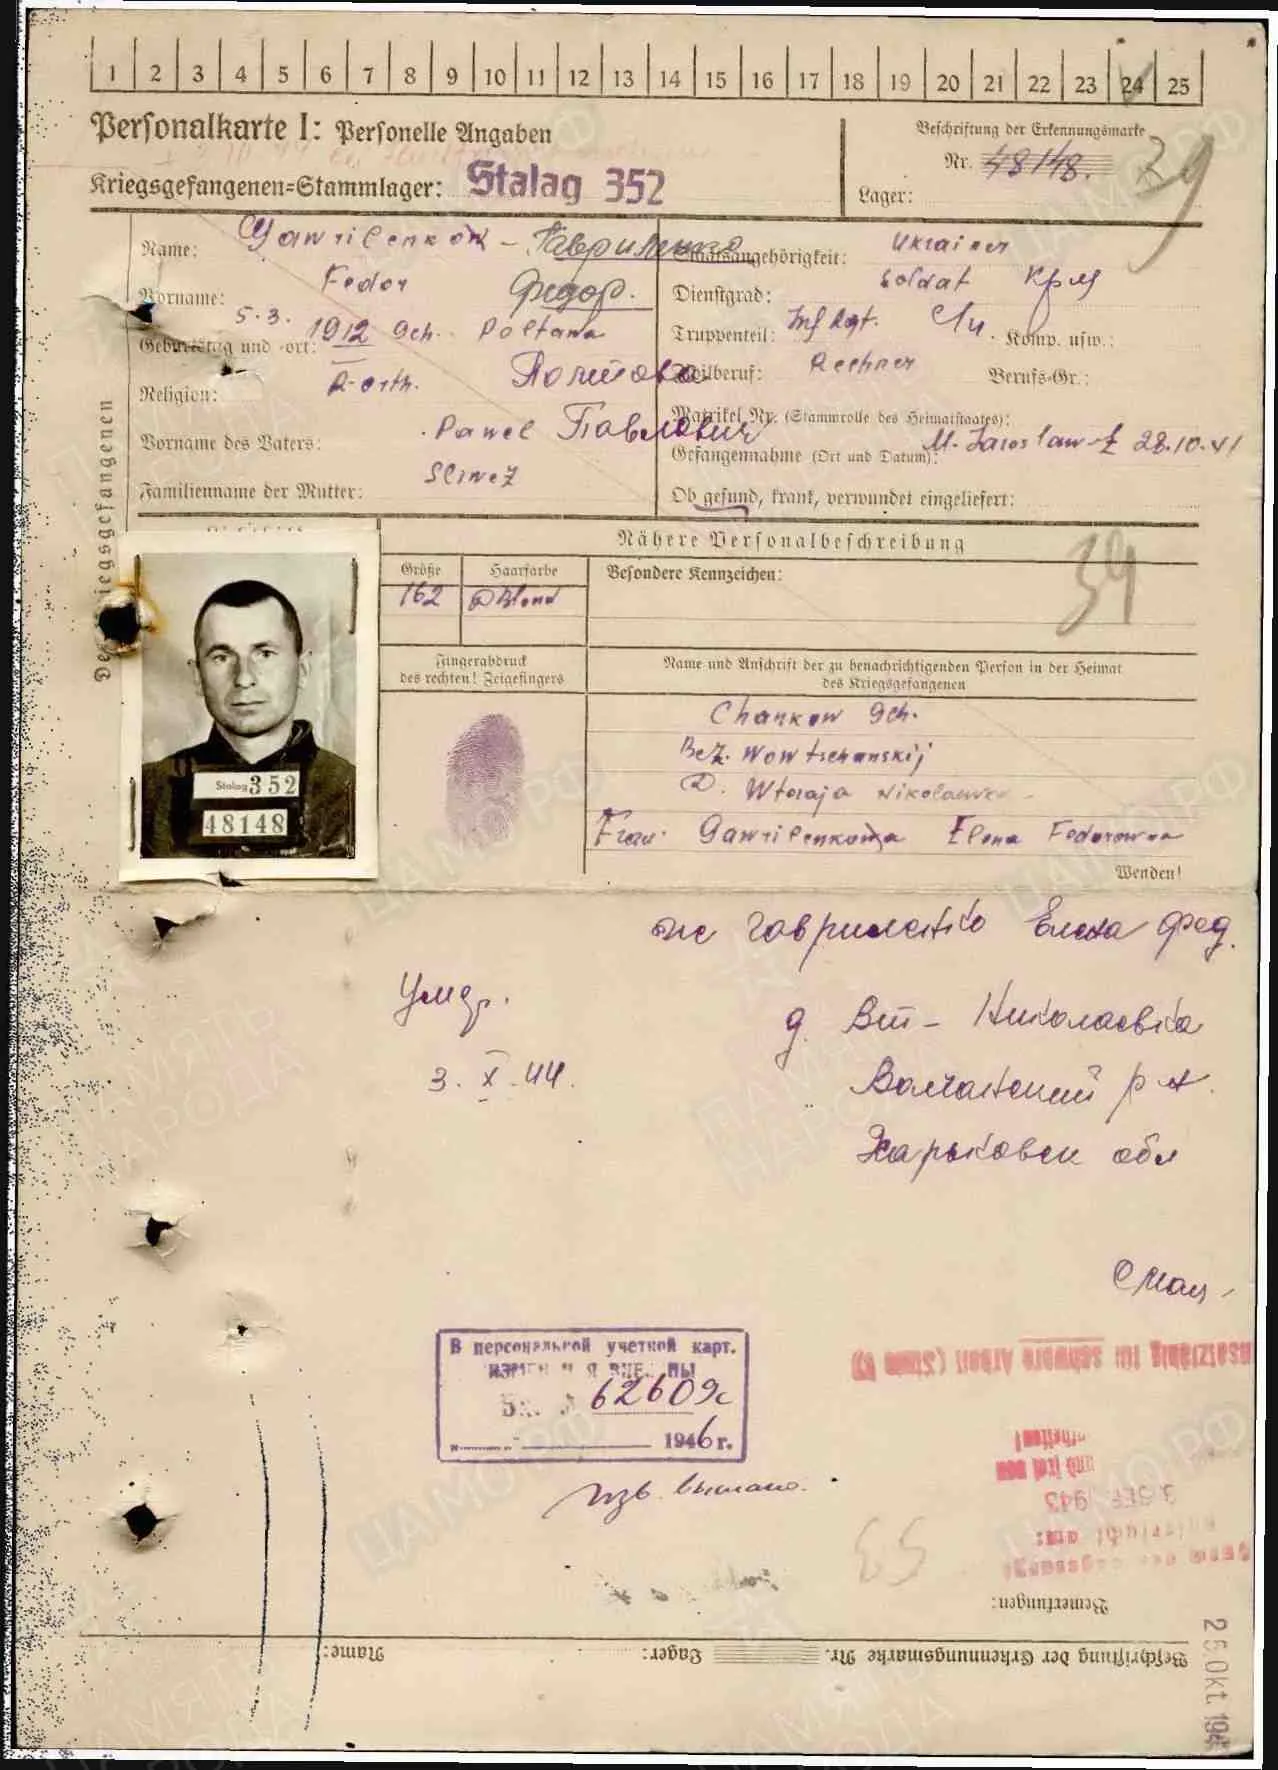 1 2 3 4 5 6 7 8 9 10 11 12 13 14 15 16 17 18 19 20 21 22 23 24 25
Personalkarte I: Personelle Angaben
Beschriftung der Erkennungsmarke
Nr. 48148.
Kriegsgefangenen=Stammlager: Stalag 352
Lager:
39
Name: Gawrilenkow - Гавриленко
Staatsangehörigkeit: Ukrainer
Vorname: Fedor Федор.
Dienstgrad: Soldat Кр-ц
Geburtstag und -ort: 5.3. 1912 Gch. Poltawa
Truppenteil: Inf Rgt. Komp. usw.:
Religion: R-orth. Полтова
Zivilberuf: Rechner Berufs-Gr.:
Matrikel Nr. (Stammrolle des Heimatstaates):
Vorname des Vaters: Pawel Павлович
Gefangennahme (Ort und Datum): M. Jaroslaw-Z 28.10.41
Familienname der Mutter:
Ob gesund, krank, verwundet eingeliefert:
Des Kriegsgefangenen
Nähere Personalbeschreibung
Größe Haarfarbe Besondere Kennzeichen:
162 D Blond
39
Fingerabdruck
des rechten! Zeigefingers
Name und Anschrift der zu benachrichtigenden Person in der Heimat
des Kriegsgefangenen
Charkow Gch.
Bez. Wowtschanskij
D. Wtoraja Nikolaewka
Frau: Gawrilenkowa Elena Fedorowna
Stalag 352
48148
Wenden!
же Гавриленко Елена Фед.
Умер.
д. Вт- Николаевка
3. X. 44.
Волчанский р-н.
Харьковск обл
В персональной учетной карт.
62609с
1946 г.
изв. выслано.
Einsatzfähig für schwere Arbeit
und frei von
3. SEP. 1943
Bemerkungen:
Beschriftung der Erkennungsmarke Nr. Lager: Name: